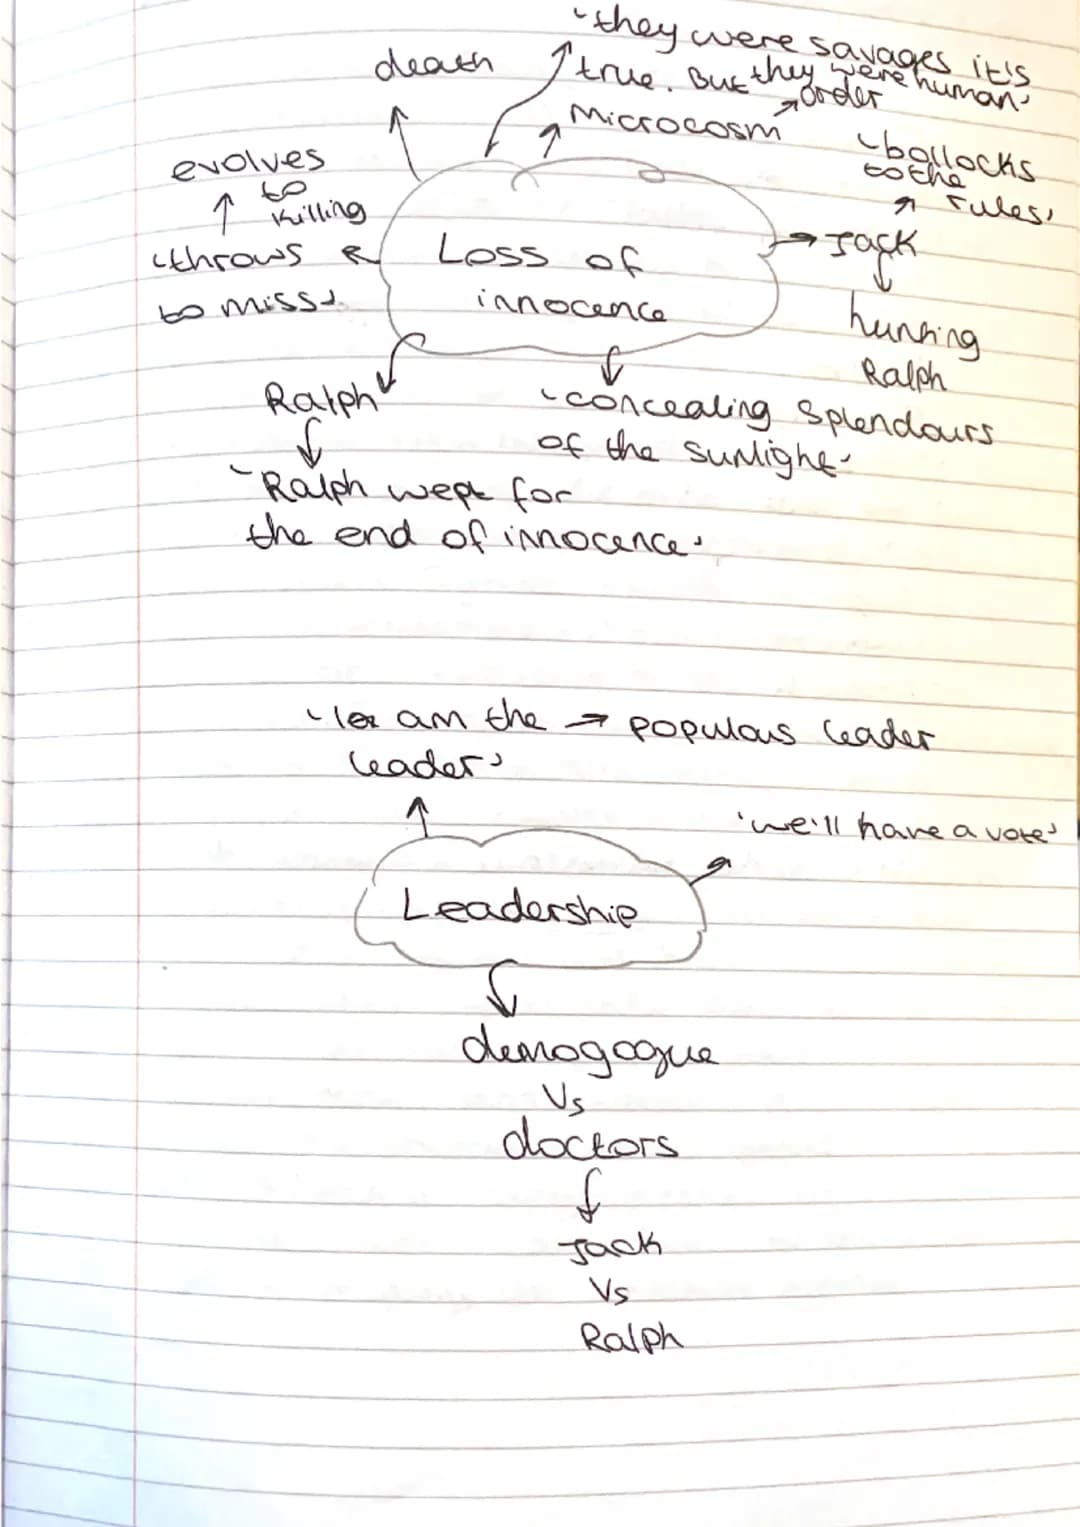 'they were savages it's
true. But they were human'
death
Microcosm
order
evolves
to
killing
'throws
to miss'
Loss of
innocence
'bollocks
to the
rules'
Jack
hunting
Ralph
Ralph
'Ralph wept for
the end of innocence'
'concealing splendours
of the sunlight'
am the
leader'
populous leader
'we'll have a vote'
Leadership
demogogue
Vs
doctors
Jack
Vs
Ralph